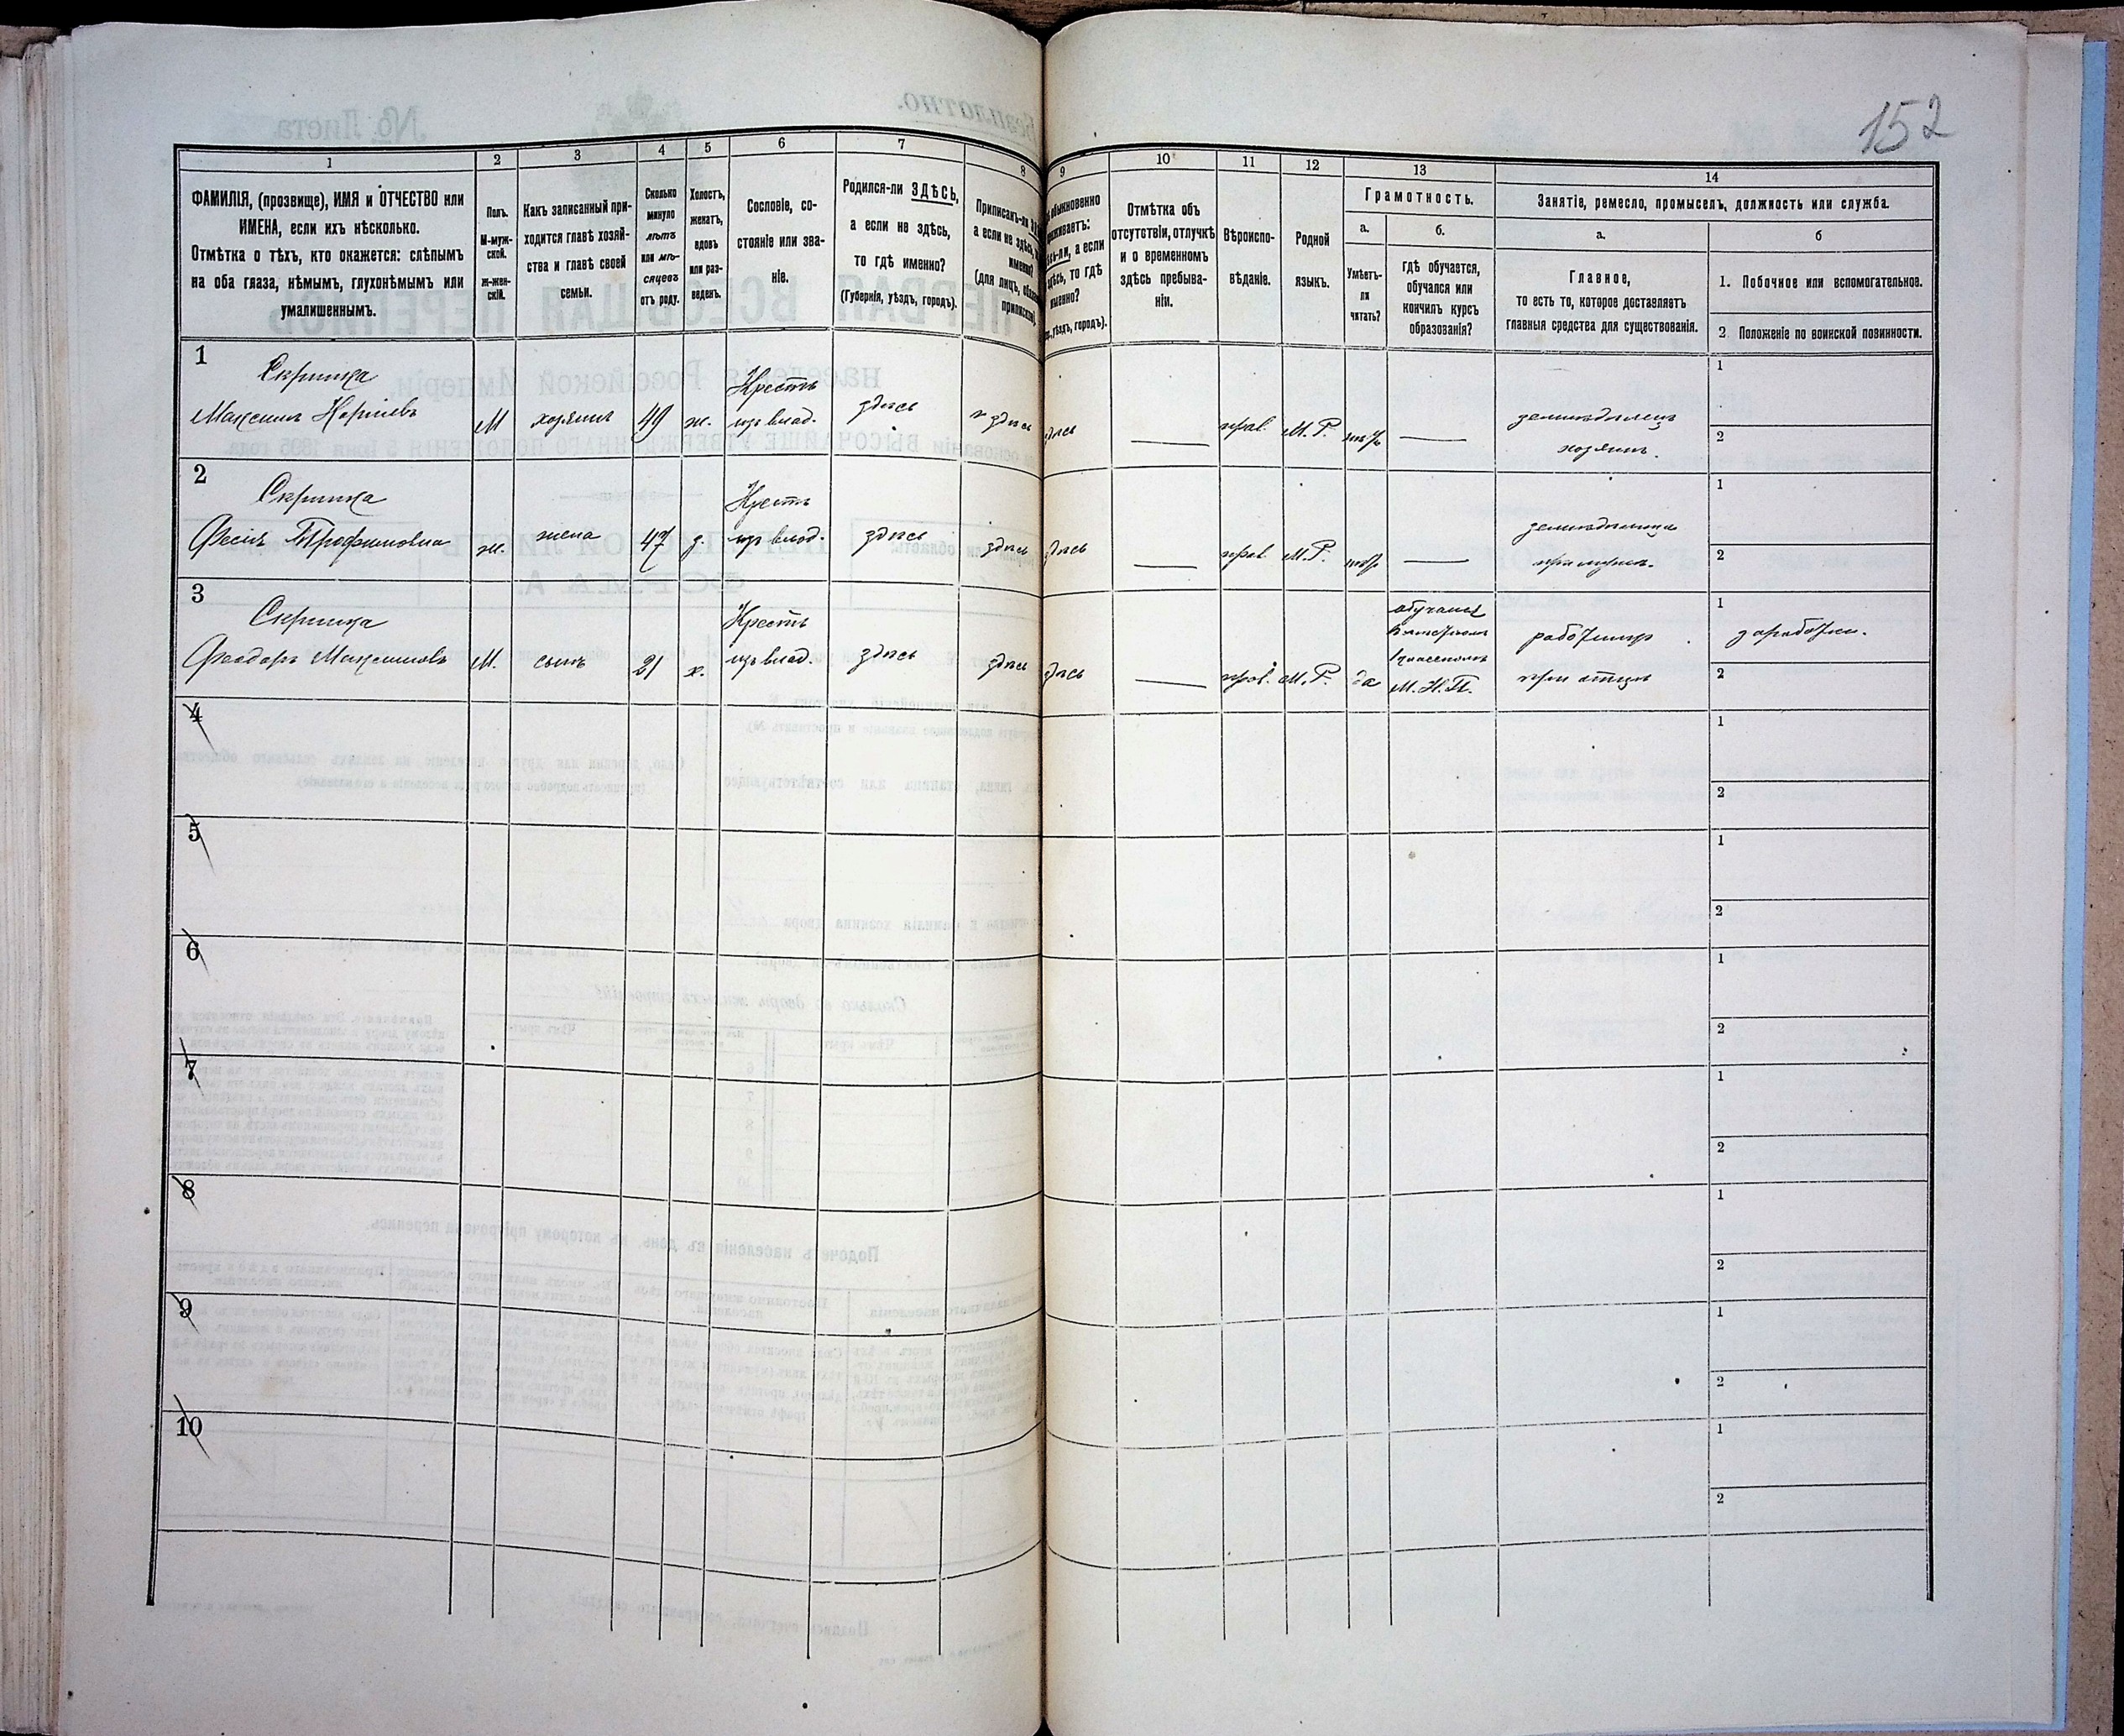 152
1
2
3
4
5
6
7
8
9
10
11
12
13
14
ФАМИЛІЯ, (прозвище), ИМЯ и ОТЧЕСТВО или
ИМЕНА, если ихъ нѣсколько.
Отмѣтка о тѣхъ, кто окажется: слѣпымъ
на оба глаза, нѣмымъ, глухонѣмымъ или
умалишеннымъ.
Полъ.
М-муж-
ской.
ж-жен-
скій.
Какъ записанный при-
ходится главѣ хозяй-
ства и главѣ своей
семьи.
Сколько
минуло
лѣтъ
или мѣ-
сяцевъ
отъ роду.
Холостъ,
женатъ,
вдовъ
или раз-
веденъ.
Сословіе, со-
стояніе или зва-
ніе.
Родился-ли ЗДѢСЬ,
а если не здѣсь,
то гдѣ именно?
(Губернія, уѣздъ, городъ).
Приписанъ-ли
а если не здѣсь,
(для лицъ,
обыкновенно
а если
здѣсь, то гдѣ
именно?
уѣздъ, городъ).
Отмѣтка объ
отсутствіи, отлучкѣ
и о временномъ
здѣсь пребыва-
ніи.
Вѣроиспо-
вѣданіе.
Родной
языкъ.
Грамотность.
а.
Умѣетъ-
ли
читать?
б.
гдѣ обучается,
обучался или
кончилъ курсъ
образованія?
Занятіе, ремесло, промыселъ, должность или служба.
а.
Главное,
то есть то, которое доставляетъ
главныя средства для существованія.
б
1. Побочное или вспомогательное.
2. Положеніе по воинской повинности.
1 Скрипка Крестъ 1
Максимъ М хозяинъ 49 ж. изъ влад. здѣсь здѣсь прав. М.Р. земледѣлецъ 2
хозяинъ.
2 Скрипка Крестъ 1
Трофимовна ж. жена 47 з. изъ влад. здѣсь здѣсь здѣсь прав. М.Р. 2
при мужѣ.
3 Скрипка Крестъ обучался 1 заработки.
Феодоръ Максимовъ М. сынъ 21 х. изъ влад. здѣсь здѣсь здѣсь прав. М.Р. да М.Н.П. при отцѣ 2
4 1
2
5 1
2
6 1
2
7 1
2
8 1
2
9 1
2
10 1
2